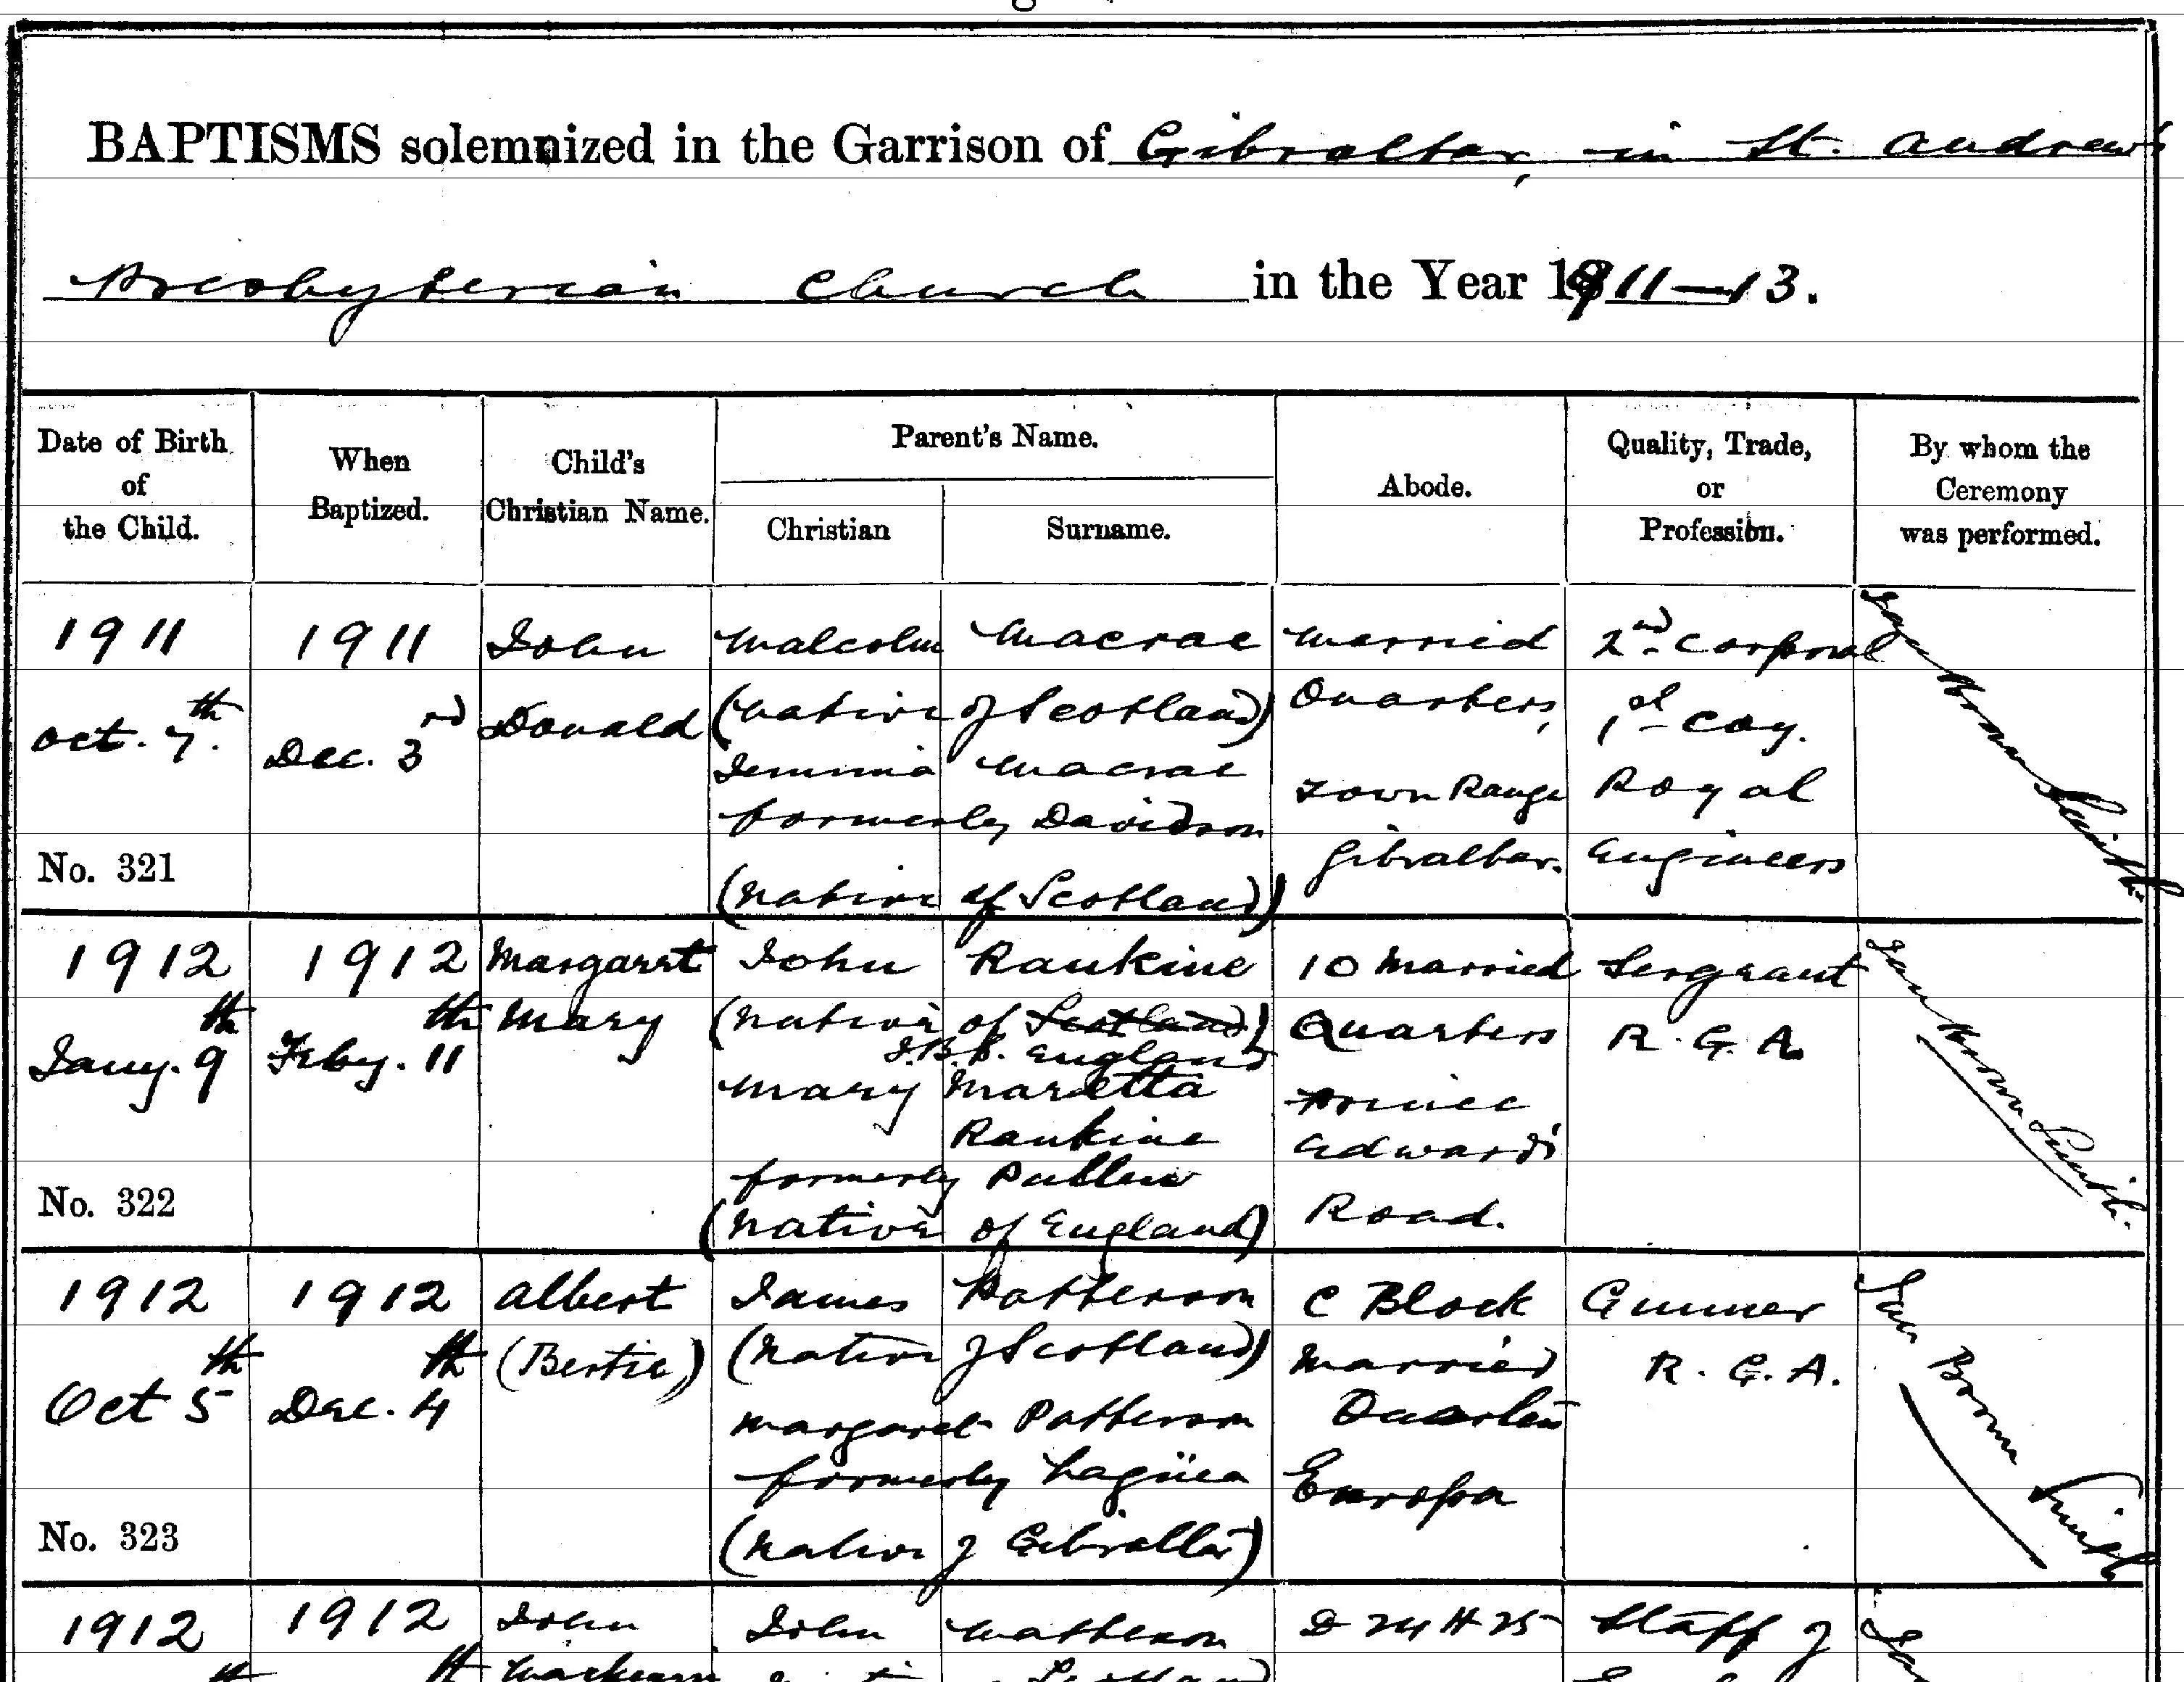 BAPTISMS solemnized in the Garrison of Gibraltar, in St. Andrew's
Presbyterian Church in the Year 1911–13.
Date of Birth of the Child.
When Baptized.
Child's Christian Name.
Parent's Name.
Christian
Surname.
Abode.
Quality, Trade, or Profession.
By whom the Ceremony was performed.
1911
Oct. 7th.
No. 321
1911
Dec. 3rd
John
Donald
Malcolm Macrae
(Native of Scotland)
Jemima Macrae
formerly Davidson
(Native of Scotland)
Married
Quarters,
Town Range
Gibraltar.
2nd Corporal
1st Coy.
Royal
Engineers
Brown Smith
1912
Jany. 9th
No. 322
1912
Feby. 11th
Margaret
Mary
John Rankine
(Native of Scotland)
I.B.S. England
Mary Maretta
Rankine
formerly Pullen
(Native of England)
10 Married
Quarters
Prince
Edward's
Road.
Sergeant
R.G.A.
Ian Brown Smith.
1912
Oct 5th
No. 323
1912
Dec. 4th
Albert
(Bertie)
James Patterson
(Native of Scotland)
Margaret Patterson
formerly
(Native of Gibraltar)
C Block
Married
Quarters
Europa
Gunner
R.G.A.
Ian Brown Smith
1912
1912
John
John Matheson
D 24 H 25
Staff of